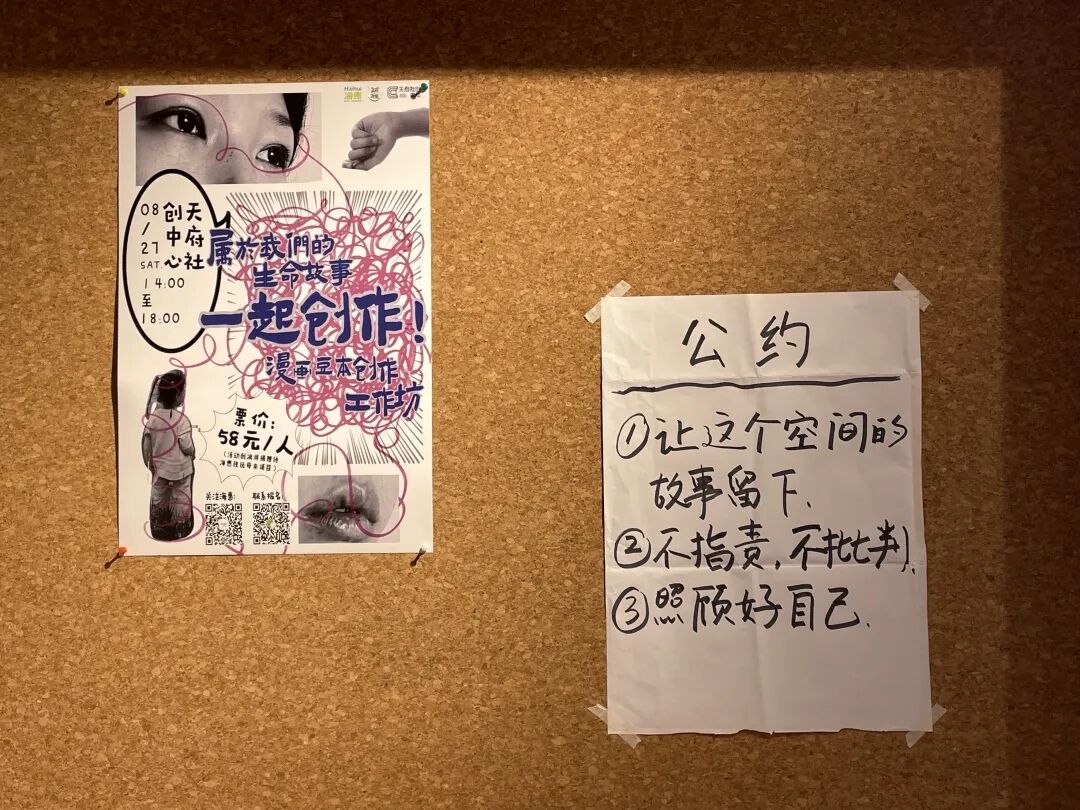 Haihui
海惠
天府社创
08
/
27
SAT.
14:00
至
18:00
天府社
创中心
属於我們的
生命故事
一起创作!
漫画豆本创作
工作坊
票价:
58元/人
关注海惠:
联系报名:
公约
①让这个空间的
故事留下.
②不指责,不批判.
③照顾好自己.